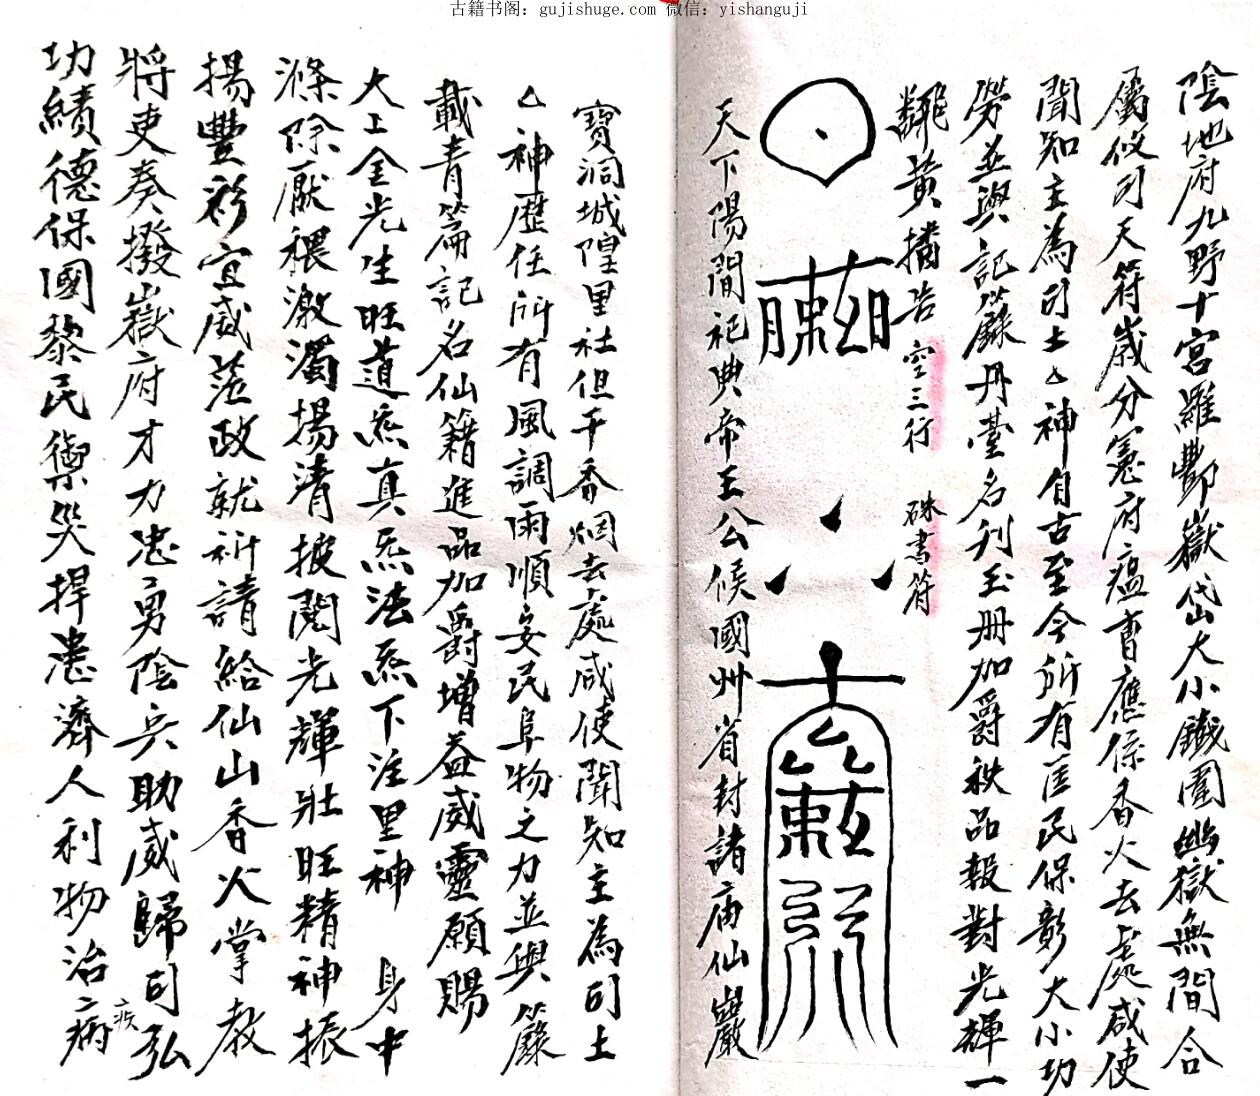 古籍书阁：gujishuge.com 微信：yishanguji
陰地府九野十宮羅酆嶽岱大小鐵圍幽獄無間合
屬攸司天符歲分憲府瘟曹應係香火去處咸使
聞知主為司土厶神自古至今所有匡民保彰大小功
勞並與記籙丹臺名刊玉冊加爵秩品報對光輝一
黃播告 空三行 硃書符
天下陽間祀典帝王公候國州省封諸庙仙巖
寶洞城隍里社但干香烟去處咸使聞知主為司土
厶神歷任所有風調雨順安民阜物之力並與籙
載青篇記名仙籍進品加爵增益威靈願賜
大上金光生旺道炁真炁法炁下注里神 身中
滌除厭穢激濁揚清披閱光輝壯旺精神振
揚豐彩宣威蒞政就祈請給仙山香火掌教
將吏奏撥嶽府才力忠勇陰兵助威歸司弘
功績德保國黎民禦災捍患濟人利物治病
疾